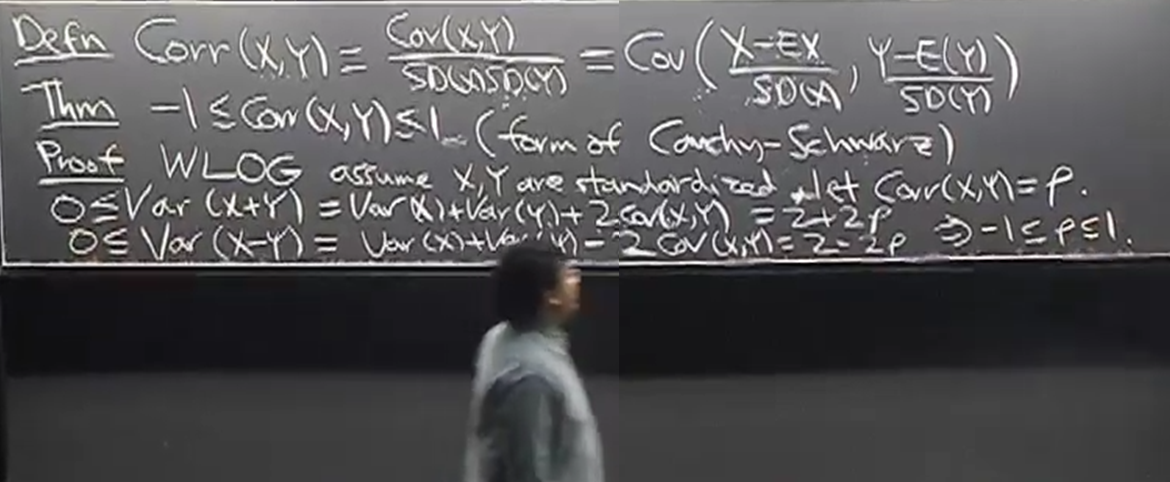 Defn Corr(X,Y) = Cov(X,Y) / SD(X)SD(Y) = Cov( X-EX / SD(X) , Y-E(Y) / SD(Y) )
Thm -1 ≤ Corr(X,Y) ≤ 1 (form of Cauchy-Schwarz)
Proof WLOG assume X,Y are standardized. Let Corr(X,Y)=ρ.
0 ≤ Var(X+Y) = Var(X)+Var(Y)+2Cov(X,Y) = 2+2ρ
0 ≤ Var(X-Y) = Var(X)+Var(Y)-2Cov(X,Y) = 2-2ρ ⇒ -1 ≤ ρ ≤ 1.